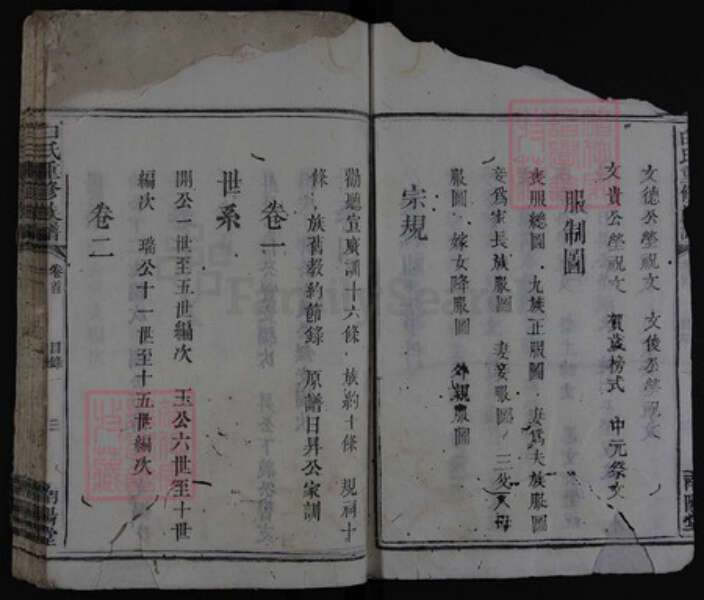 文德公塋祝文 文後公塋祝文
文貴公塋祝文 賀葢榜式 中元祭文
服制圖
喪服總圖 九族正服圖 妻為夫族服圖
妾為家長族服圖 妻妾服圖 三父八母
服圖 嫁女降服圖 外親服圖
宗規
勸聽宣廣訓十六條 族約十條 規祠十
條 族舊教約節錄 原譜日昇公家訓
卷一
世系
開公一世至五世編次 玉公六世至十世
編次 瑞公十一世至十五世編次
卷二
氏重修族譜 卷首 目錄 二 南陽堂
FamilySearch